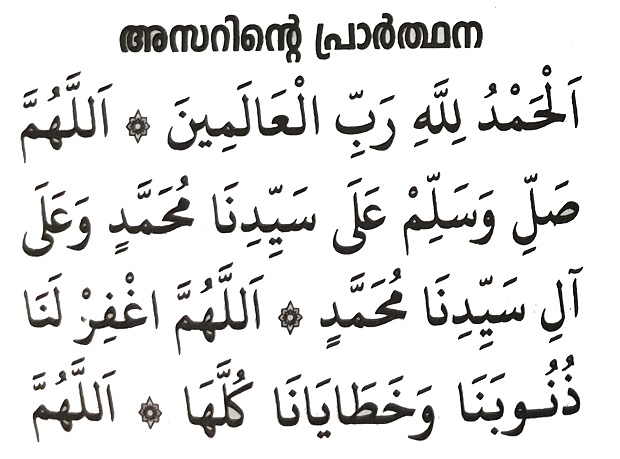 അസറിന്റെ പ്രാർത്ഥന
اَلْحَمْدُ لِلَّهِ رَبِّ الْعَالَمِينَ ۞ اَللَّهُمَّ
صَلِّ وَسَلِّمْ عَلَى سَيِّدِنَا مُحَمَّدٍ وَعَلَى
آلِ سَيِّدِنَا مُحَمَّدٍ ۞ اَللَّهُمَّ اغْفِرْ لَنَا
ذُنُوبَنَا وَخَطَايَانَا كُلَّهَا ۞ اَللَّهُمَّ